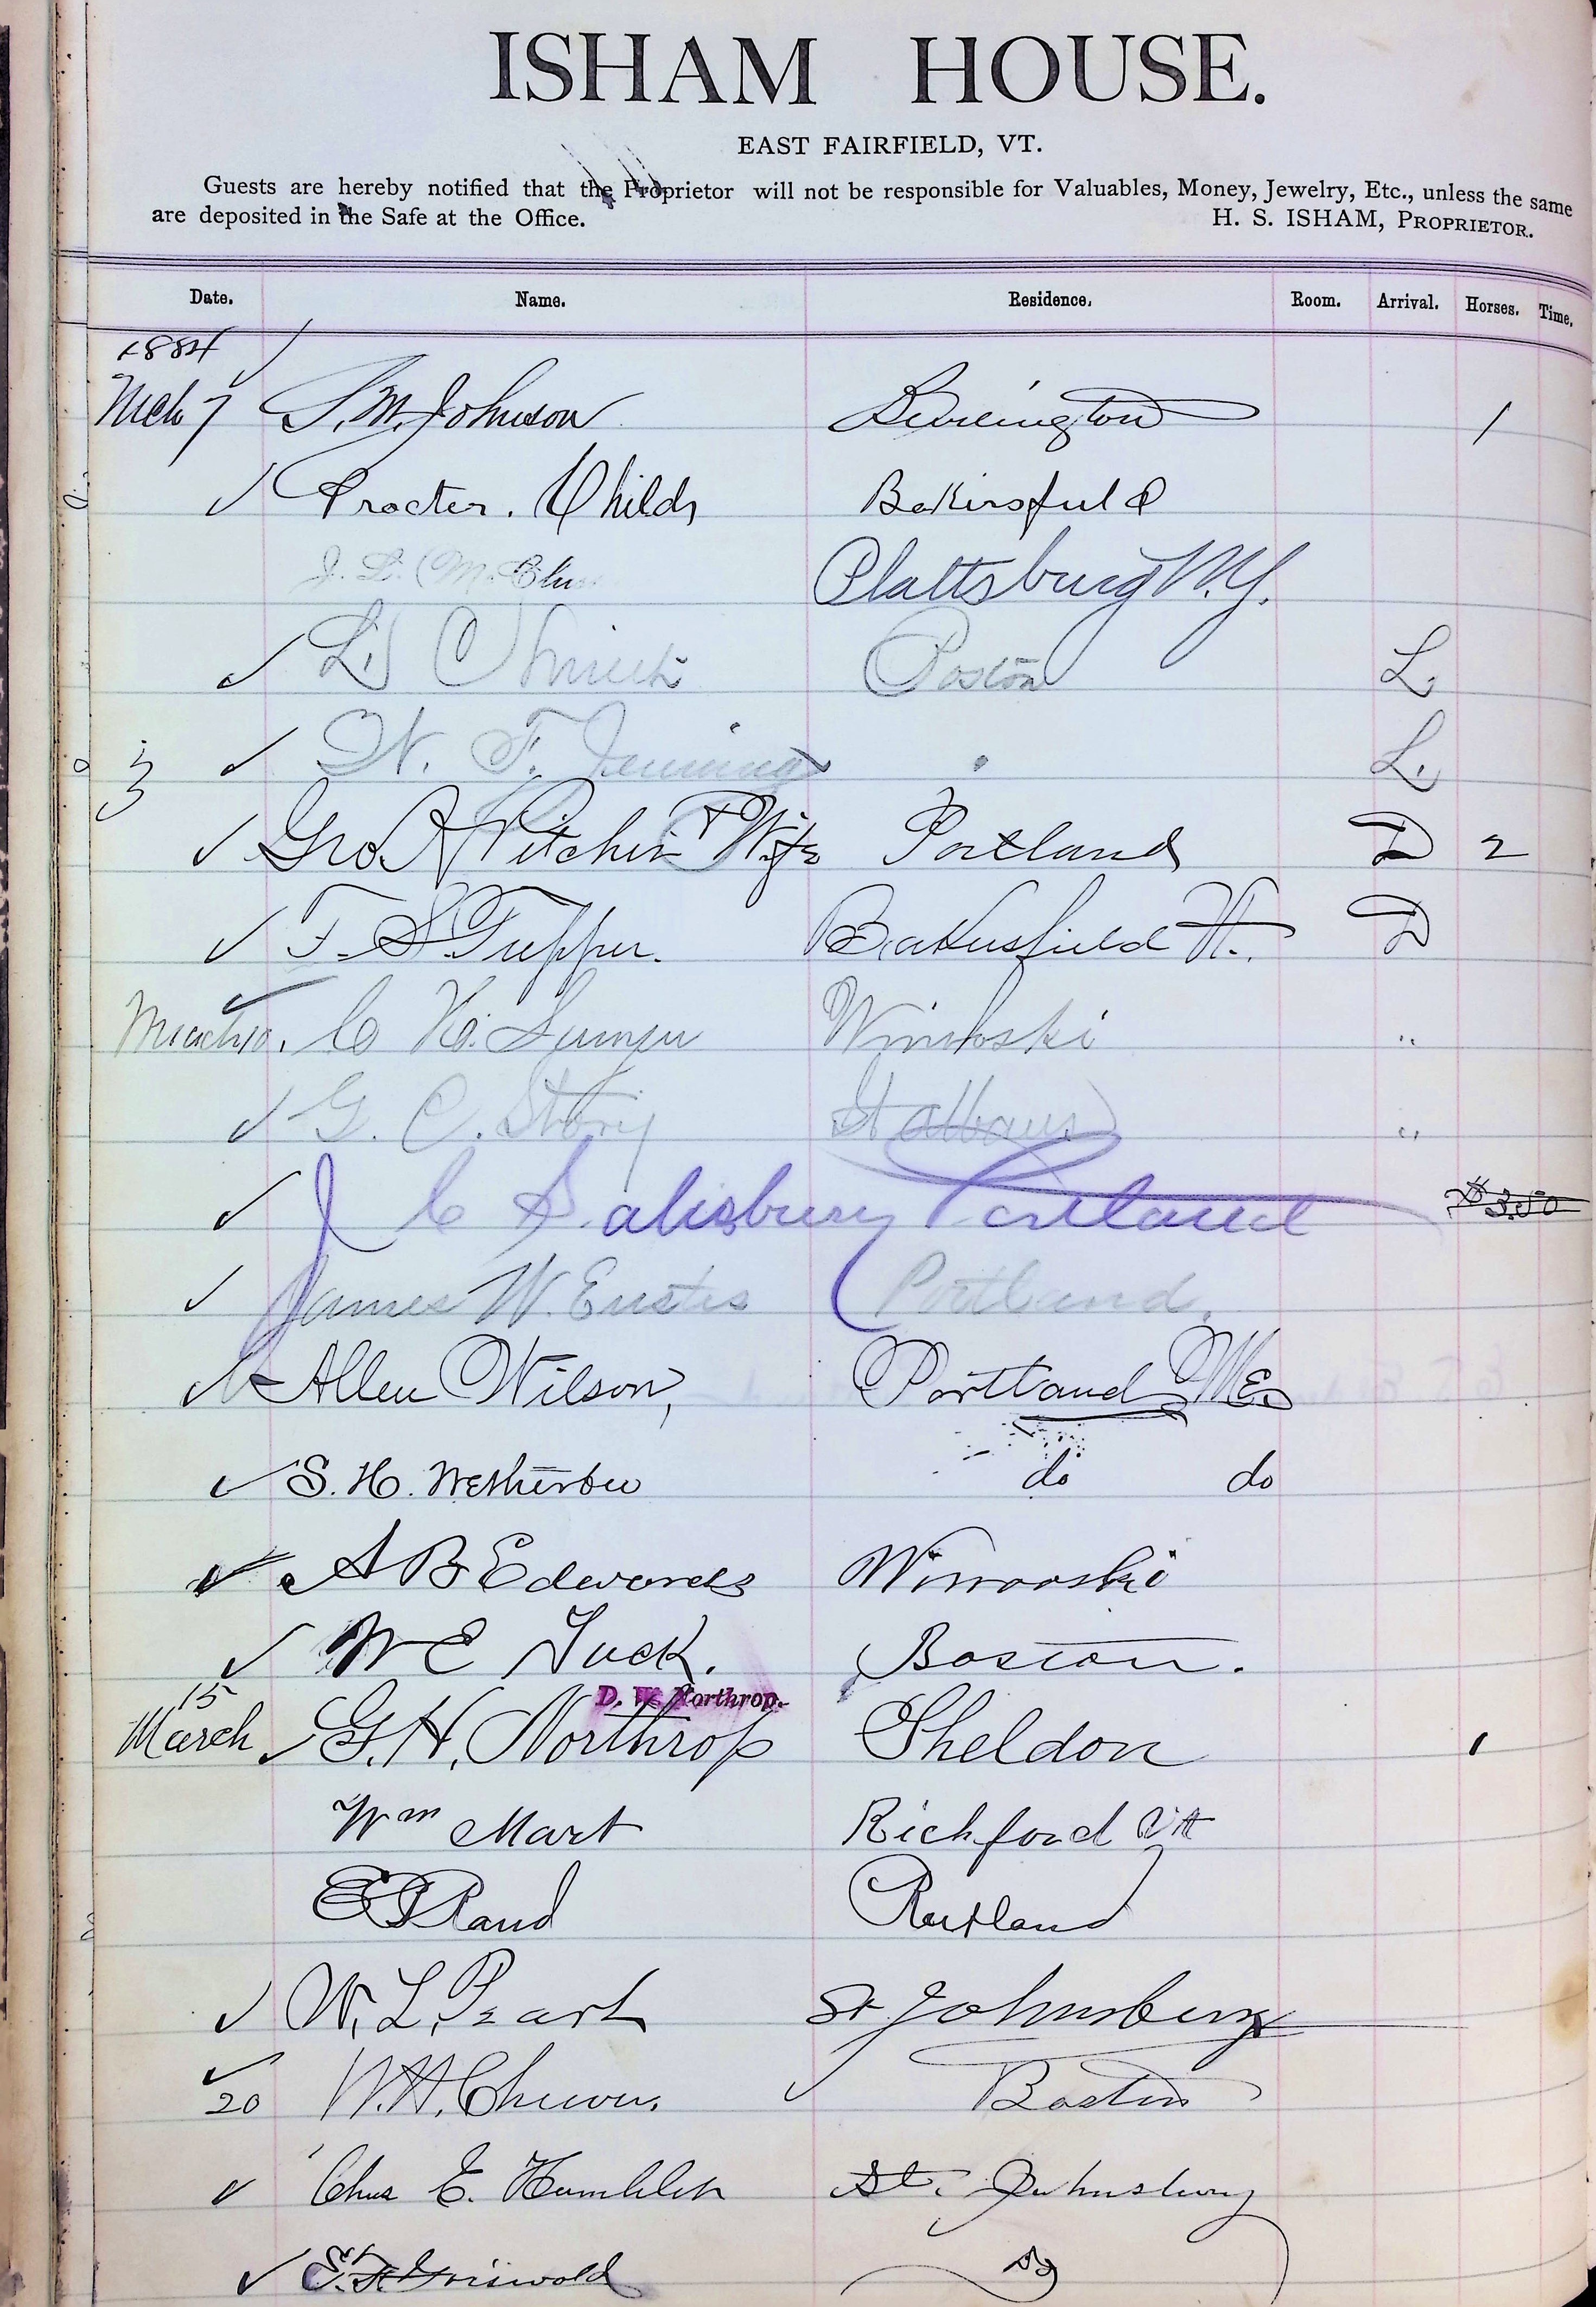 ISHAM HOUSE.
EAST FAIRFIELD, VT.
Guests are hereby notified that the Proprietor will not be responsible for Valuables, Money, Jewelry, Etc., unless the same
are deposited in the Safe at the Office. H. S. ISHAM, PROPRIETOR.
Date. Name. Residence. Room. Arrival. Horses. Time.
1884
Mch 7 S. M. Johnson Burlington 1
Procter. Childs Bakersfield
J. L. Plattsburg N.Y.
L. C Smith Boston L.
W. F. Jennings " L.
Geo R Pitcher & Wife Portland D 2
F. S. Tupper. Bakersfield Vt. D
March 10. C. H. Winooski "
G. C. Story St Albans "
J C Salisbury Portland $3.50
James W. Eustis Portland.
Allen Wilson, Portland, Me.
S. H. Wetherbee do do
A B Edwards Winooski
W E Tuck. Boston.
D. W. Northrop.
15
March G. H. Northrop Sheldon 1
Wm Mart Richford Vt
E Rand Rutland
W. L. Pearl St Johnsbury
20 W. H. Boston
Chas E. St. Johnsbury
E. F. Griswold Do